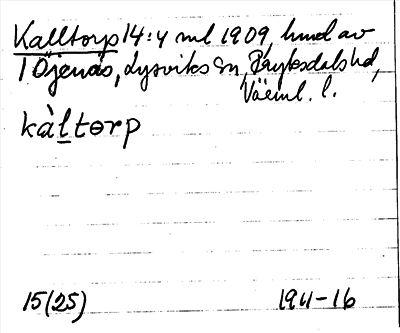 Kalltorp 14:4 ml 1909, hmd av
1 Öjenäs, Lysviks sn, Fryksdals hd,
Värml. l.
kàl̲torp
15(25) 1911-16